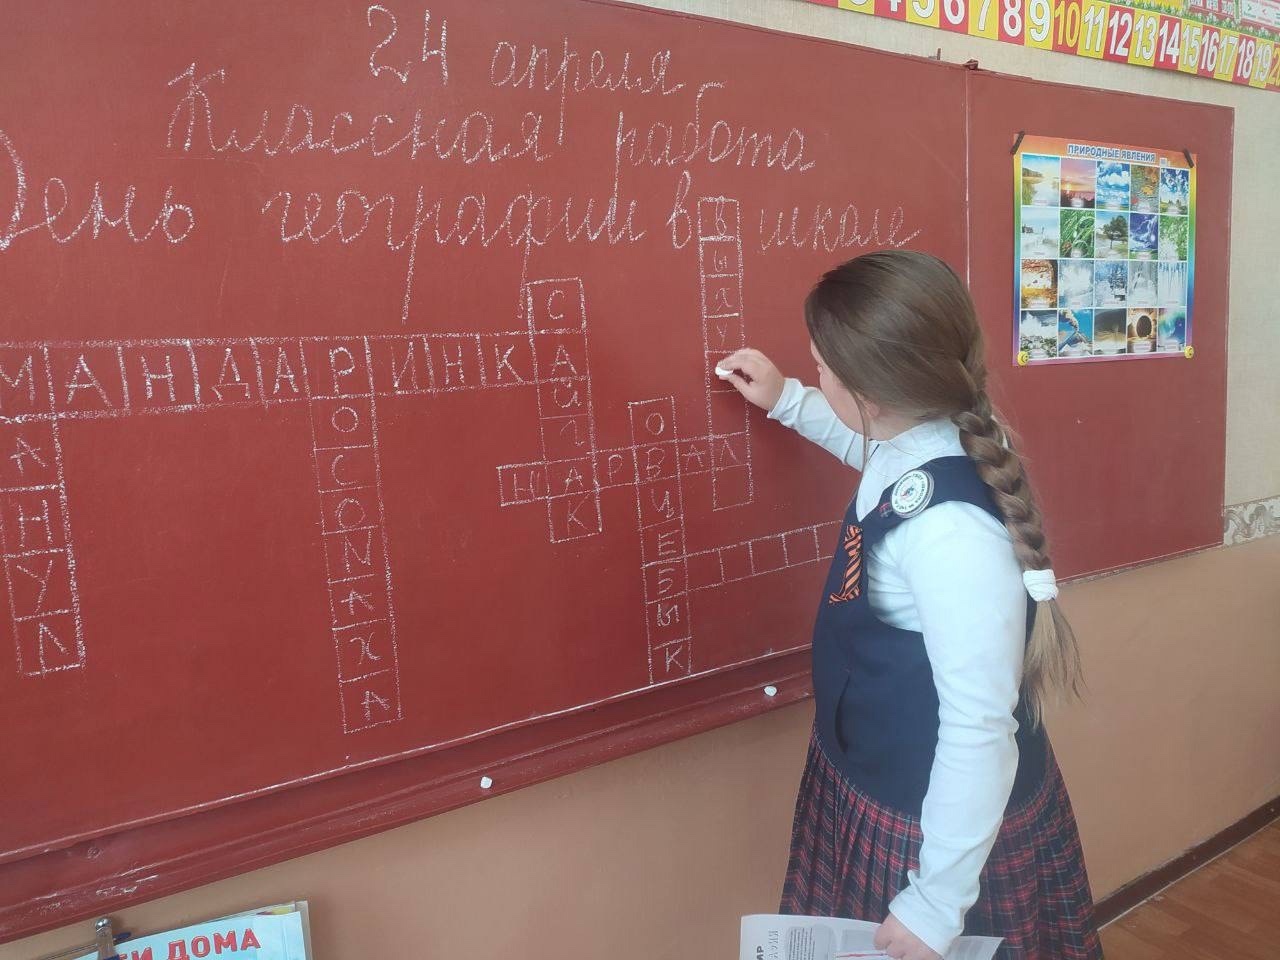 24 апреля
Классная работа
День географии в школе
МАНДАРИНКА
САЙГАК
ВЫХУ
Л
РОСОМАХА
ОВЦЕБЫК
НАРВАЛ
АНУЛ
ПРИРОДНЫЕ ЯВЛЕНИЯ
5 6 7 8 9 10 11 12 13 14 15 16 17 18 19
ДОМА